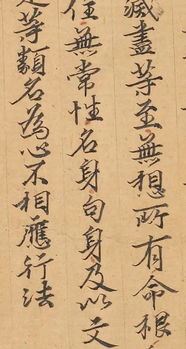 滅盡等至無想所有命根
住無常性名身句身及以文
等類名為心不相應行法